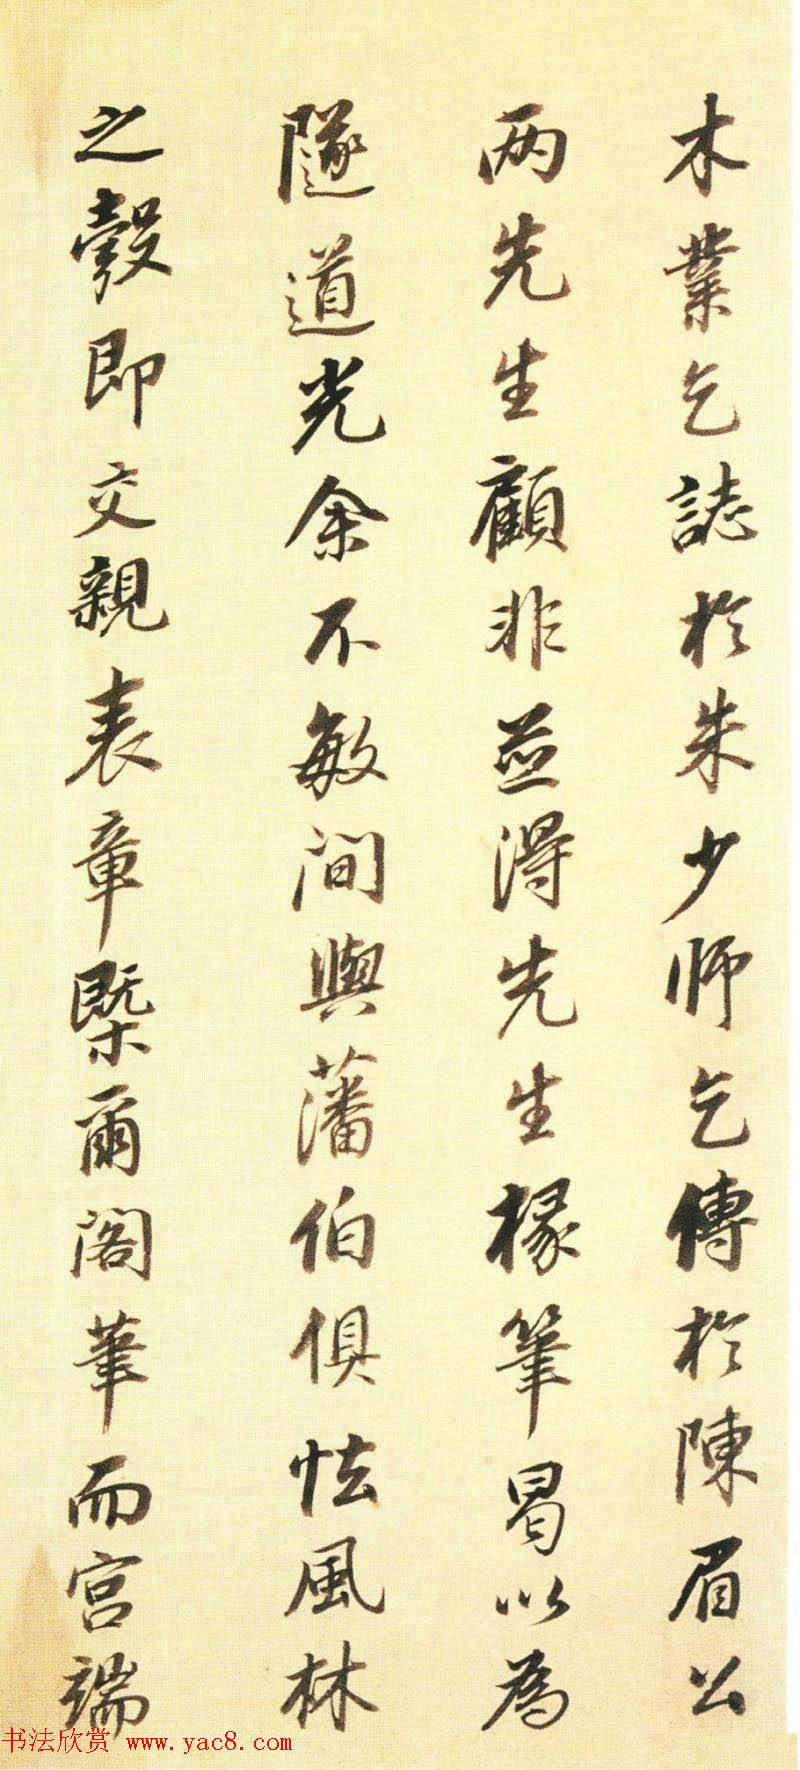 木業乞誌於朱少師乞傳於陳眉公
两先生顧非並得先生椽筆曷以為
隧道光余不敏間與藩伯俱怯風林
之彀即交親表章槩爾閣筆而宮端
书法欣赏 www.yac8.com